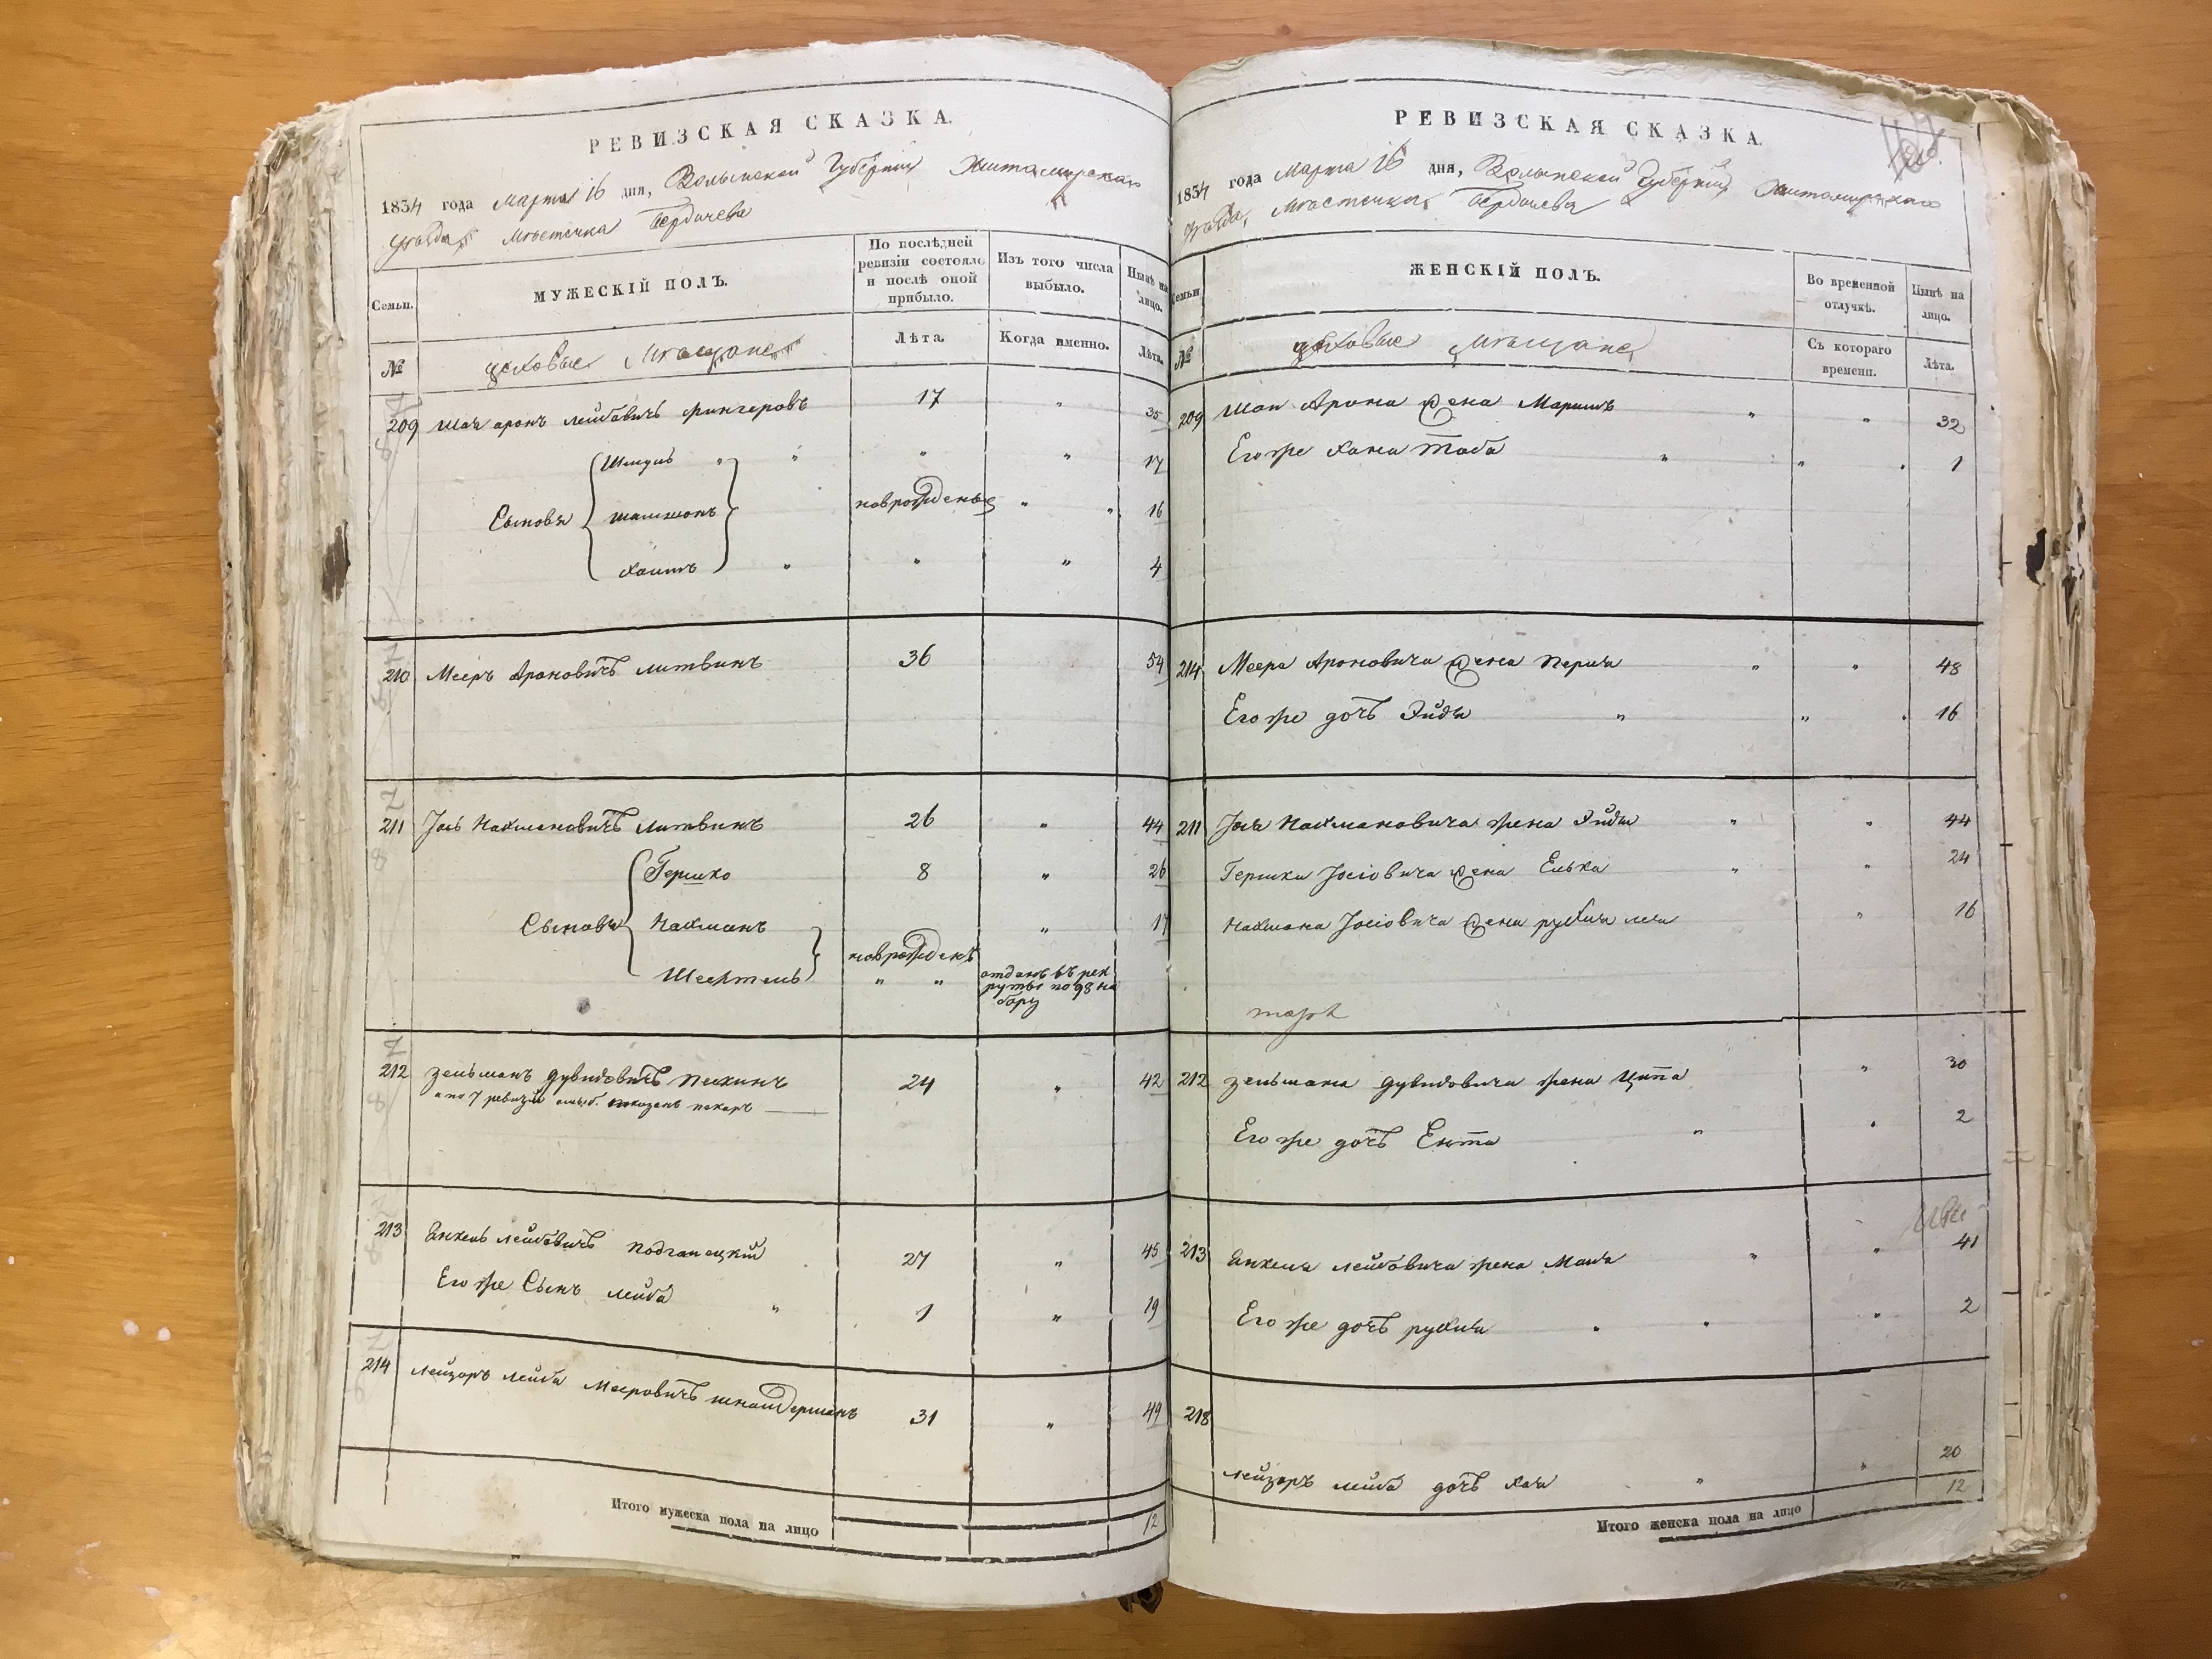 РЕВИЗСКАЯ СКАЗКА.
1834 года Марта 16 дня, Волынской Губернии Житомирскаго
уѣзда, Мѣстечка Бердичева
Семьи. МУЖЕСКІЙ ПОЛЪ. По послѣдней ревизіи состояло и послѣ оной прибыло. Изъ того числа выбыло. Нынѣ на лицо.
№ цеховые Мѣщане Лѣта. Когда именно. Лѣта.
209 Шая аронъ лейбовичъ фингеровъ 17 " 35
Шмуль " " " " 17
Сыновья шамшонъ новрожденые " " 16
хаимъ " " " 4
210 Мееръ Ароновичъ литвинъ 36 54
211 Јось Нахмановичъ литвинъ 26 " 44
Гершко 8 " 26
Сыновья Нахманъ новрожденъ " 17
Шехтель " " отданъ въ рек
руты по 98 на
бору
212 зельманъ дувидовичъ пекинъ 24 " 42
а по 7 ревизіи показанъ пекарь
213 Янкель лейбовичъ подганецкій 27 " 45
Его же Сынъ лейба " 1 " 19
214 лейзоръ лейба Меровичъ шнайдерманъ 31 " 49
Итого мужеска пола на лицо 12
РЕВИЗСКАЯ СКАЗКА.
1834 года Марта 16 дня, Волынской Губерніи Житомирскаго
уѣзда, Мѣстечка Бердичева
Семьи ЖЕНСКІЙ ПОЛЪ. Во временной отлучкѣ. Нынѣ на лицо.
№ цеховые Мѣщане Съ котораго времени. Лѣта.
209 Шаи Арона жена Маримъ " " 32
Его же Хана Тоба " " . 1
214 Меера Ароновича жена Перля " " 48
Его же дочь Эйдя " " . 16
211 Јося Нахмановича жена Эйдя " " 44
Гершки Јосіовича жена Елька " " 24
Нахмана Јосіовича жена рухля леа " 16
212 зельмана дувидовича жена Ципа " 30
Его же дочь Ента " " 2
213 Янкеля лейбовича жена Маля " " 41
Его же дочь рухля " " " 2
218
лейзоръ лейба дочь хая " " 20
Итого женска пола на лицо 12